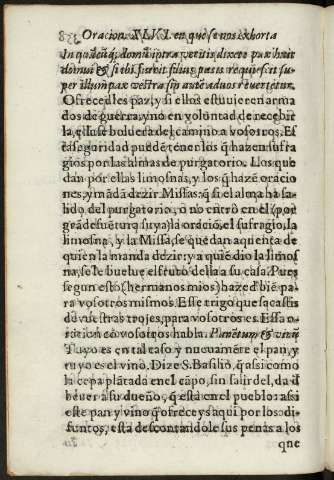 Oracion XLVI. en que se nos exhorta
In quãcũq; domũ iptra veritis dicere pax huic
domui & si ibi fuerit filius pacis requiescit su-
per illum pax vestra sin autẽ ad vos reuertetur.
Ofreceldes paz, y si ellos estuuieren arma
dos de guerra, y no en voluntad de recebir
la, ella se boluera del camino a vosotros. Es
ta seguridad puedẽ tener los q̃ hazen sufra
gios por las almas de purgatorio. Los que
dan por ellas limosnas, y los q̃ hazẽ oracio
nes, y mãdã dezir Missas: q̃ si el alma ha sa-
lido del purgatorio, o no entro en el (por
grãde suẽte suya) la oraciõ, el sufragio, la
limosna, y la Missa, se quedan a quenta de
quien la manda dezir: y a quiẽ dio la limos
na, se le buelue el fruto della a su casa. Pues
segun esto, (hermanos mios) hazed biẽ pa-
ra vosotros mismos. Esse trigo que sacastis
de vuestras trojes, para vosotros es. Essa o-
racion cõ vosotros habla. Panẽ tuum & vinũ
Tuyo es en tal caso y nueuamẽte el pan, y
tuyo es el vino. Dize S. Basilio, q̃ assi como
la cepa plãtada en el cãpo, sin salir del, da d̃
beuer a su dueño, q̃ esta en el pueblo: assi
este pan y vino q̃ ofreceys aqui por los di-
funtos, esta descontandole sus penas a los
que